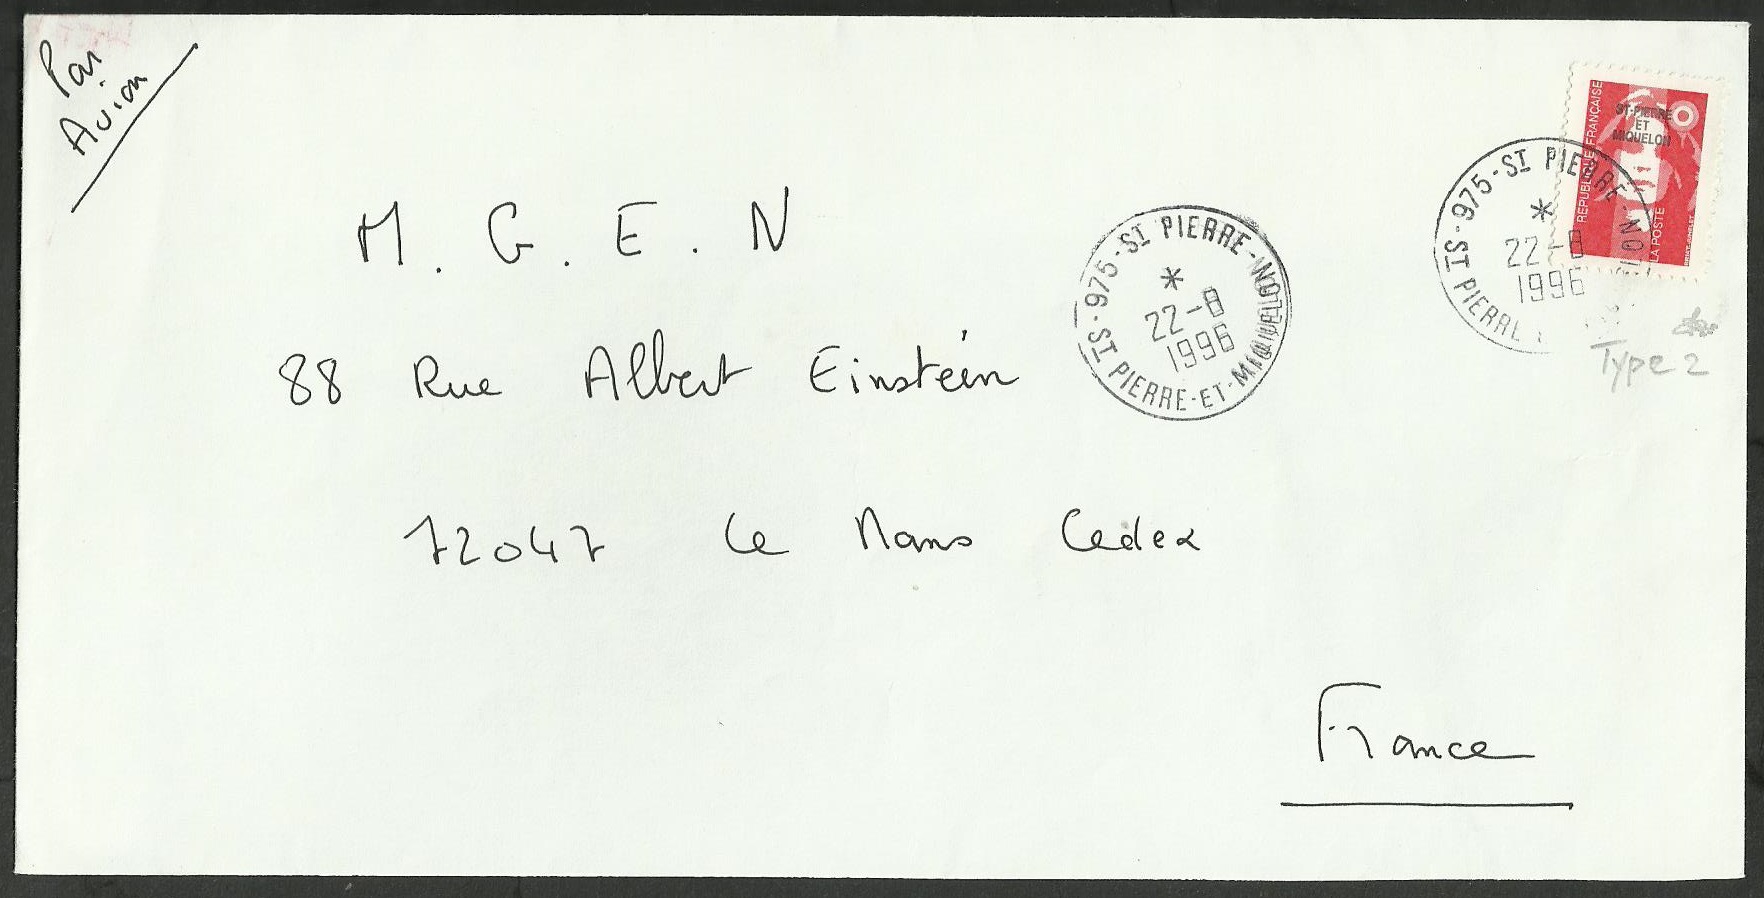 Par
Avion
M. G. E. N
88 Rue Albert Einstein
72047 Le Mans Cedex
France
975-ST PIERRE-
ST PIERRE-ET-MIQUELON
22-8
1996
ST-PIERRE
ET
MIQUELON
REPUBLIQUE FRANÇAISE
LA POSTE
975-ST PIERRE-
ST PIERRE
22-8
1996
Type 2